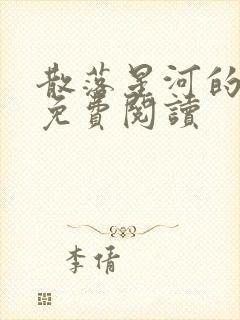 散落星河的
免費閱讀
李倩